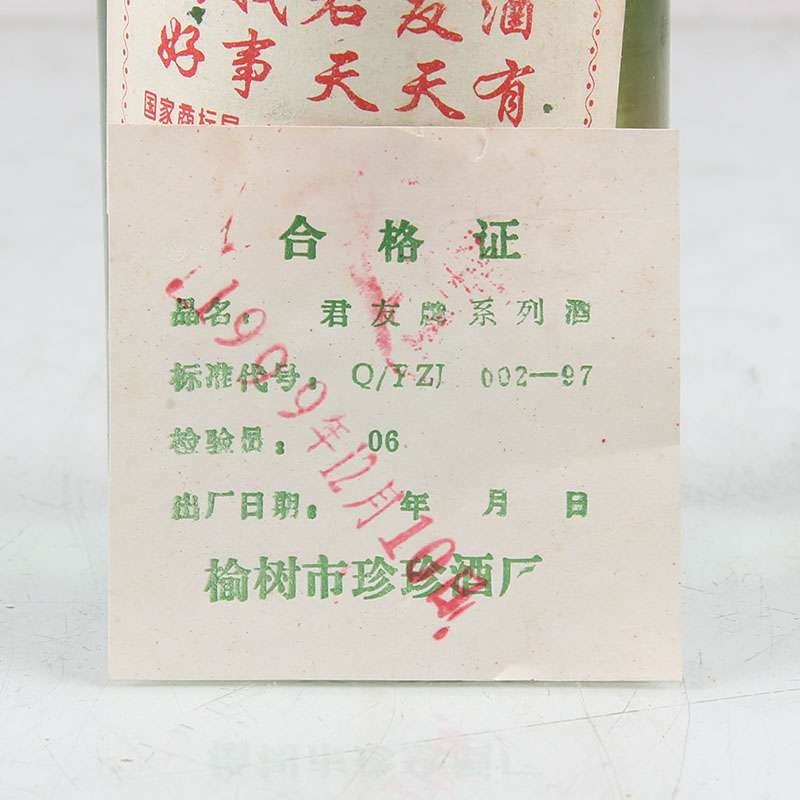 君友酒
好事天天有
国家商标局
合格证
品名：君友牌系列酒
标准代号：Q/YZJ 002—97
检验员：06
出厂日期：年 月 日
1999年12月10日
榆树市珍珍酒厂